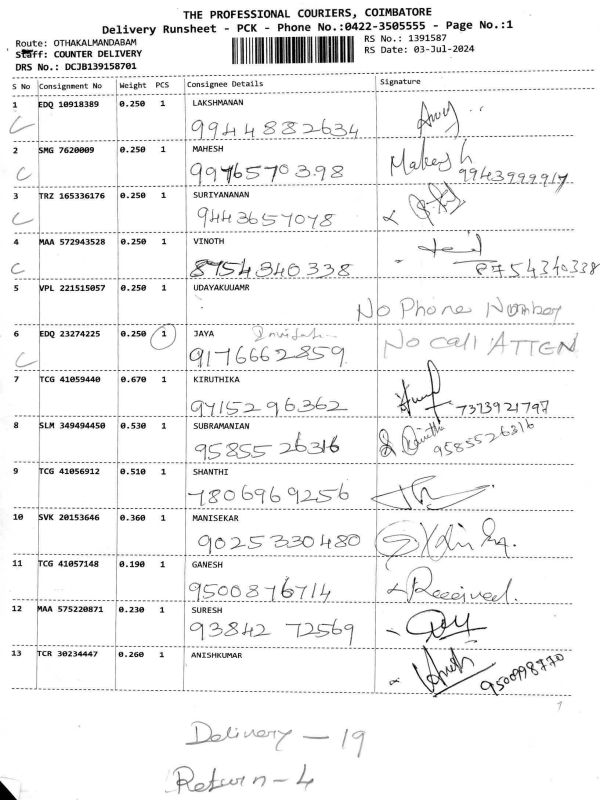 THE PROFESSIONAL COURIERS, COIMBATORE
Delivery Runsheet - PCK - Phone No.:0422-3505555 - Page No.:1
Route: OTHAKALMANDABAM
RS No.: 1391587
Staff: COUNTER DELIVERY
RS Date: 03-Jul-2024
DRS No.: DCJB139158701
S No Consignment No Weight PCS Consignee Details Signature
1 EDQ 10918389 0.250 1 LAKSHMANAN
9944882634
2 SMG 7620009 0.250 1 MAHESH
9976570398 Mahesh 9943999917
3 TRZ 165336176 0.250 1 SURIYANANAN
9443657078
4 MAA 572943528 0.250 1 VINOTH
8754340338 8754340338
5 VPL 221515057 0.250 1 UDAYAKUUAMR
No Phone Number
6 EDQ 23274225 0.250 1 JAYA
9176662859 No call ATTEN
7 TCG 41059440 0.670 1 KIRUTHIKA
9715296362 7373921797
8 SLM 349494450 0.530 1 SUBRAMANIAN
9585526316 9585526316
9 TCG 41056912 0.510 1 SHANTHI
7806969256
10 SVK 20153646 0.360 1 MANISEKAR
9025330480
11 TCG 41057148 0.190 1 GANESH
9500876714 Received.
12 MAA 575220871 0.230 1 SURESH
93842 72569
13 TCR 30234447 0.260 1 ANISHKUMAR
9500998770
1
Delivery - 19
Return - 4